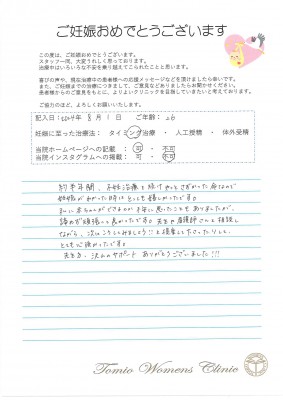 ご妊娠おめでとうございます
この度は、ご妊娠おめでとうございます。
スタッフ一同、大変うれしく思っております。
治療中はいろいろな不安を乗り越えてこられたことと思います。
喜びの声や、現在治療中の患者様への応援メッセージなどを頂けましたら幸いです。
また、ご妊娠までの治療につきまして、ご意見などありましたらお聞かせください。
患者様からのご意見をもとに、よりよいクリニックを目指していきたいと考えております。
ご協力のほど、よろしくお願いいたします。
記入日:2024年 8月 1日 ご年齢:26
妊娠に至った治療法: タイミング治療 ・ 人工授精 ・ 体外受精
当院ホームページへの掲載: 可 ・ 不可
当院インスタグラムへの掲載: 可 ・ 不可
約半年間、不妊治療を続けやっとさずかった命なので
妊娠がわかった時はとっても嬉しかったです。
私に赤ちゃんができるのか不安に思ったこともありましたが、
諦めず頑張って良かったです。先生や看護師さんと相談し
ながら、次はこうしてみましょう!!と提案して下さったりして、
とても心強かったです。
先生方、沢山のサポート ありがとうございました!!!
Tomio Womens Clinic